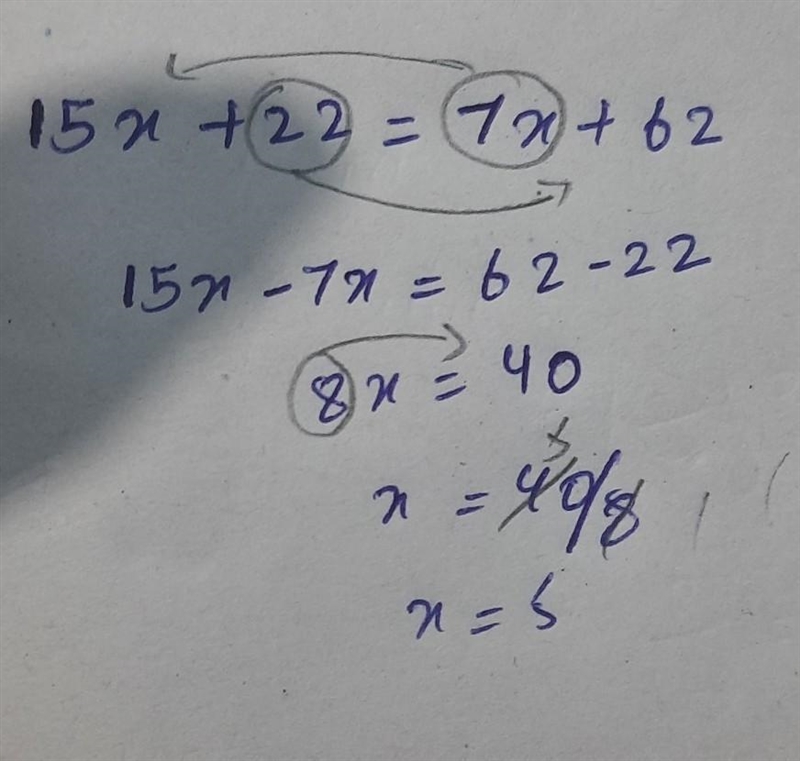 15x + 22 = 7x + 62
15x - 7x = 62 - 22
8x = 40
5
x = 40/8
x = 5